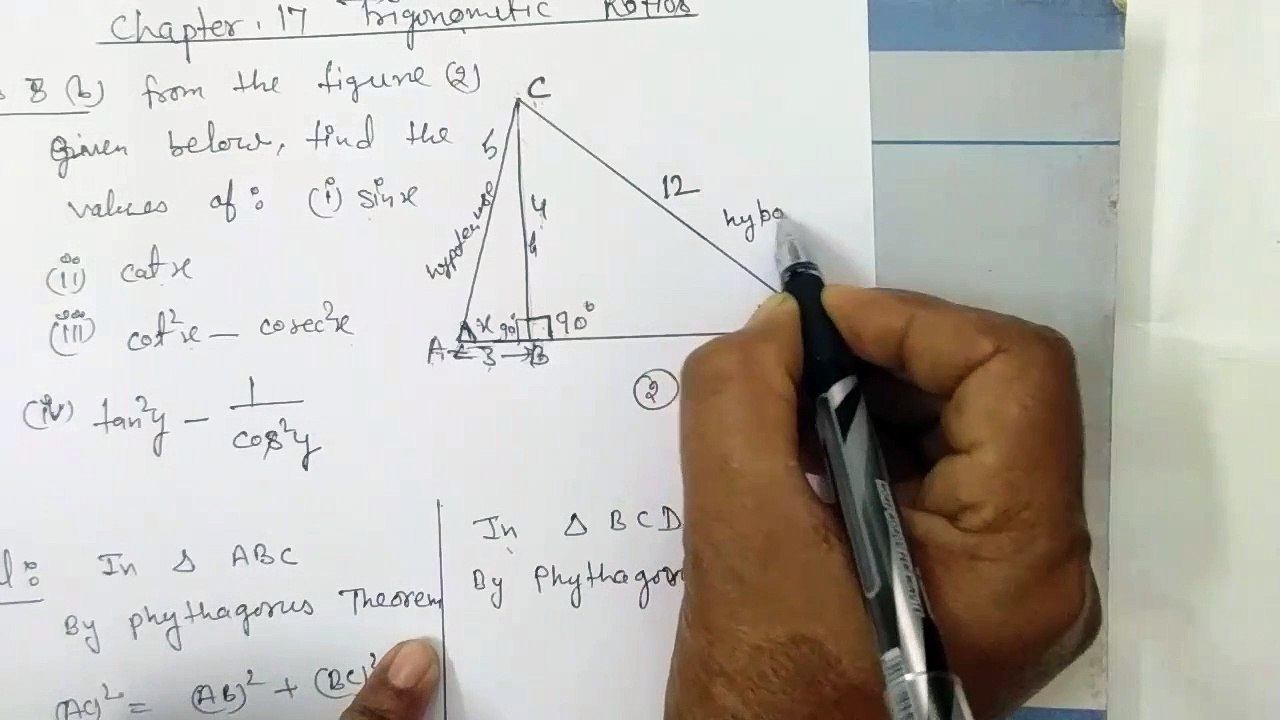 Chapter. 17 Trigonometic Ratios
8 (b) from the figure (2)
Given below, find the
values of: (i) sinx
(ii) cotx
(iii) cot²x - cosec²x
(iv) tan²y - 1/cos²y
C
5
4
4
12
hypotenuse
hypo
A x 90° 90°
A ← 3 → B
2
In Δ ABC
By Phythagorus Theorem
(AC)² = (AB)² + (BC)²
In Δ BCD
By Phythagoru